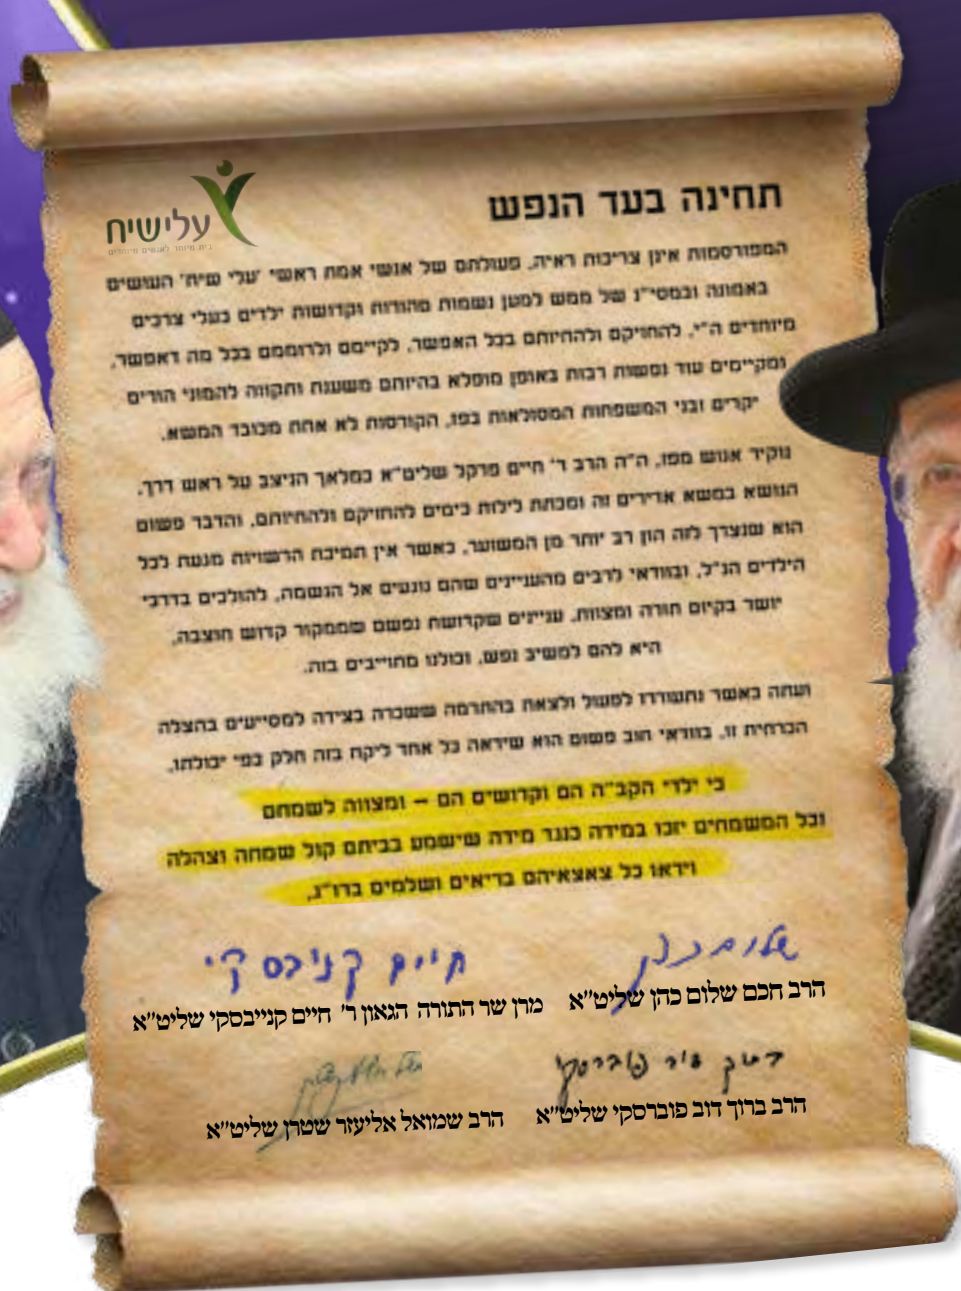 תחינה בעד הנפש
עלי שיח
בית מיוחד לאנשים מיוחדים
המפורסמות אינן צריכות ראיה, פעולתם של אנשי אמת ראשי 'עלי שיח' העושים
באמונה ובמסי"נ של ממש למען נשמות טהורות וקדושות ילדים בעלי צרכים
מיוחדים ה"י, להחזיקם ולהחיותם בכל האפשר, לקיימם ולרוממם בכל מה דאפשר,
ומקיימים עוד נפשות רבות באופן מופלא בהיותם משענת ותקווה להמוני הורים
יקרים ובני המשפחות המסולאות בפז, הקורסות לא אחת מכובד המשא.
נוקיר אנוש מפז, ה"ה הרב ר' חיים פרקל שליט"א כמלאך הניצב על ראש דרך,
הנושא במשא אדירים זה ומכתת לילות כימים להחזיקם ולהחיותם, והדבר פשוט
הוא שנצרך לזה הון רב יותר מן המשוער, כאשר אין תמיכת הרשויות מגעת לכל
הילדים הנ"ל, ובוודאי לרבים מהעניינים שהם נוגעים אל הנשמה, להולכים בדרכי
יושר בקיום תורה ומצוות, עניינים שקדושת נפשם שממקור קדוש חוצבה,
היא להם למשיב נפש, וכולנו מחוייבים בזה.
ועתה כאשר נתעוררו לפעול ולצאת בהתרמה ששכרה בצידה למסייעים בהצלה
הכרחית זו, בוודאי חוב פשוט הוא שיראה כל אחד ליקח בזה חלק כפי יכולתו,
כי ילדי הקב"ה הם וקדושים הם – ומצווה לשמחם
וכל המשמחים יזכו במידה כנגד מידה שישמע בביתם קול שמחה וצהלה
ויראו כל צאצאיהם בריאים ושלמים ברו"ג,
שלום כהן
חיים קניבסקי
הרב חכם שלום כהן שליט"א
מרן שר התורה הגאון ר' חיים קנייבסקי שליט"א
ברוך דוב פוברסקי
הרב ברוך דוב פוברסקי שליט"א
הרב שמואל אליעזר שטרן שליט"א